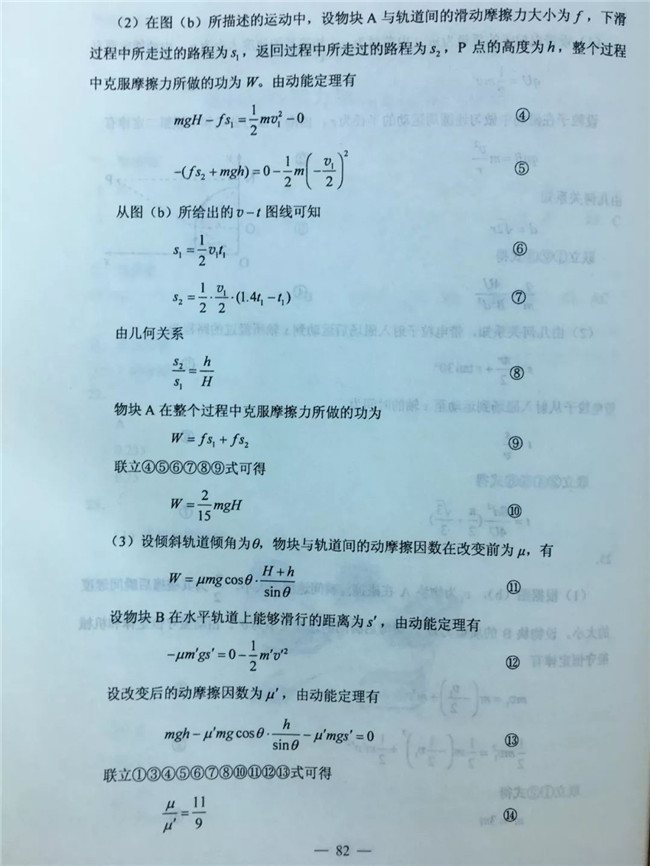 （2）在图（b）所描述的运动中，设物块 A 与轨道间的滑动摩擦力大小为 f，下滑
过程中所走过的路程为 s₁，返回过程中所走过的路程为 s₂，P 点的高度为 h，整个过程
中克服摩擦力所做的功为 W。由动能定理有
mgH − fs₁ = 1/2 mv₁² − 0 ④
−(fs₂ + mgh) = 0 − 1/2 m(−v₁/2)² ⑤
从图（b）所给出的 v − t 图线可知
s₁ = 1/2 v₁t₁ ⑥
s₂ = 1/2 · v₁/2 · (1.4t₁ − t₁) ⑦
由几何关系
s₂/s₁ = h/H ⑧
物块 A 在整个过程中克服摩擦力所做的功为
W = fs₁ + fs₂ ⑨
联立④⑤⑥⑦⑧⑨式可得
W = 2/15 mgH ⑩
（3）设倾斜轨道倾角为θ，物块与轨道间的动摩擦因数在改变前为 μ，有
W = μmg cosθ · (H + h)/sinθ ⑪
设物块 B 在水平轨道上能够滑行的距离为 s′，由动能定理有
−μm′gs′ = 0 − 1/2 m′v′² ⑫
设改变后的动摩擦因数为 μ′，由动能定理有
mgh − μ′mg cosθ · h/sinθ − μ′mgs′ = 0 ⑬
联立①③④⑤⑥⑦⑧⑩⑪⑫⑬式可得
μ/μ′ = 11/9 ⑭
— 82 —